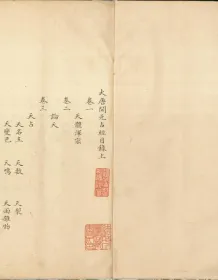 大唐開元占經目錄上
卷一
天體渾宗
卷二
論天
卷三
天占
天名主 天數 天裂
天變色 天鳴 天雨雜物